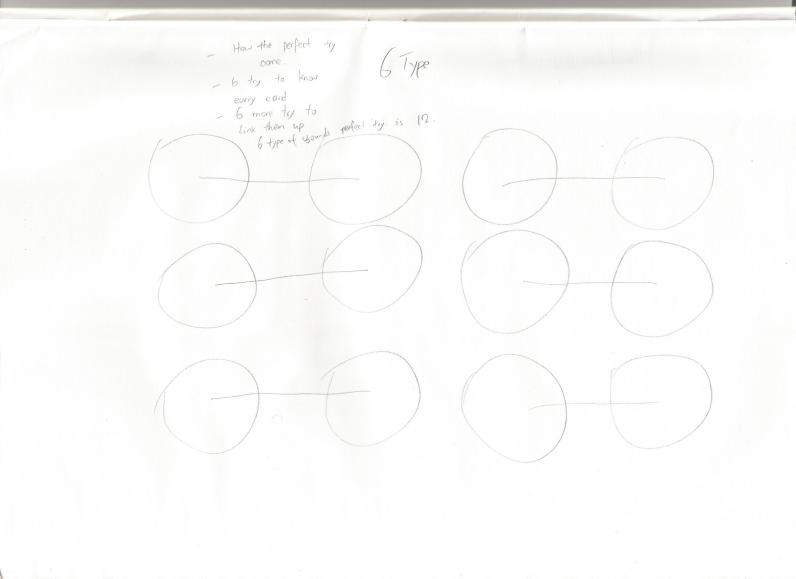 - How the perfect try
come.
- 6 try to know
every card
- 6 more try to
Link them up
6 type of sounds perfect try is 12.
6 Type